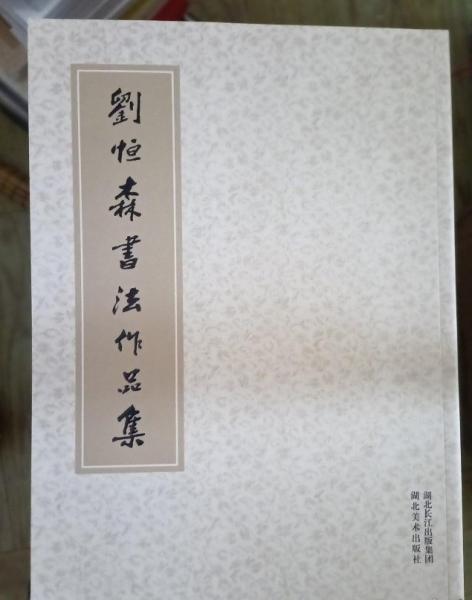 劉恒森書法作品集
湖北长江出版集团
湖北美术出版社